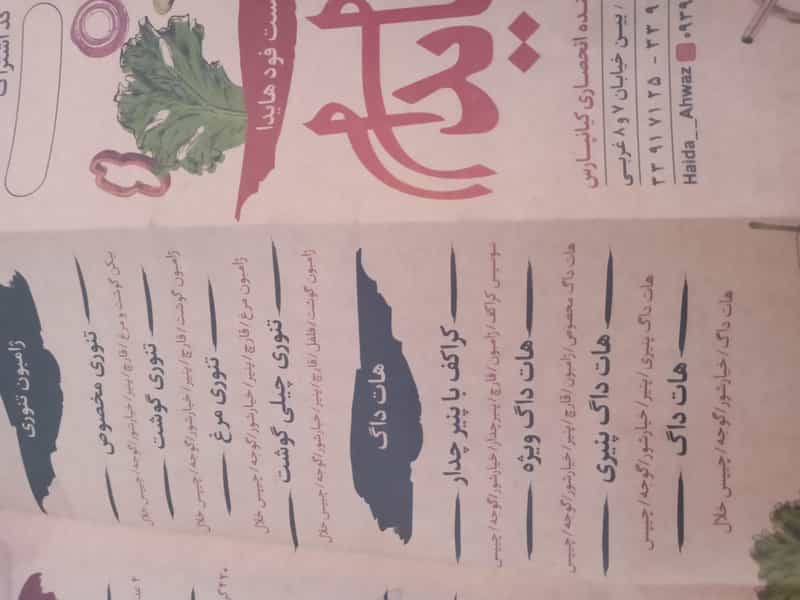 فست فود هایدا
هایدا
ده انحصاری کیانپارس
بین خیابان ۷ و ۸ غربی
۳۳ ۹۱ ۷۱ ۲۵ - ۳۳ ۹
Haida__Ahwaz ۰۹۳۹
کد اشتراک
ژامبون تنوری
تنوری مخصوص
بیکن گوشت و مرغ / قارچ / پنیر / خیارشور / گوجه / چیپس خلال
تنوری گوشت
ژامبون گوشت / قارچ / پنیر / خیارشور / گوجه / چیپس خلال
تنوری مرغ
ژامبون مرغ / قارچ / پنیر / خیارشور / گوجه / چیپس خلال
تنوری چیلی گوشت
ژامبون گوشت / فلفل / قارچ / پنیر / خیارشور / گوجه / چیپس خلال
هات داگ
کراکف با پنیر چدار
سوسیس کراکف / ژامبون / قارچ / پنیر چدار / خیارشور / گوجه / چیپس
هات داگ ویژه
هات داگ مخصوص / ژامبون / قارچ / پنیر / خیارشور / گوجه / چیپس
هات داگ پنیری
هات داگ پنیری / پنیر / خیارشور / گوجه / چیپس
هات داگ
هات داگ / خیارشور / گوجه / چیپس خلال